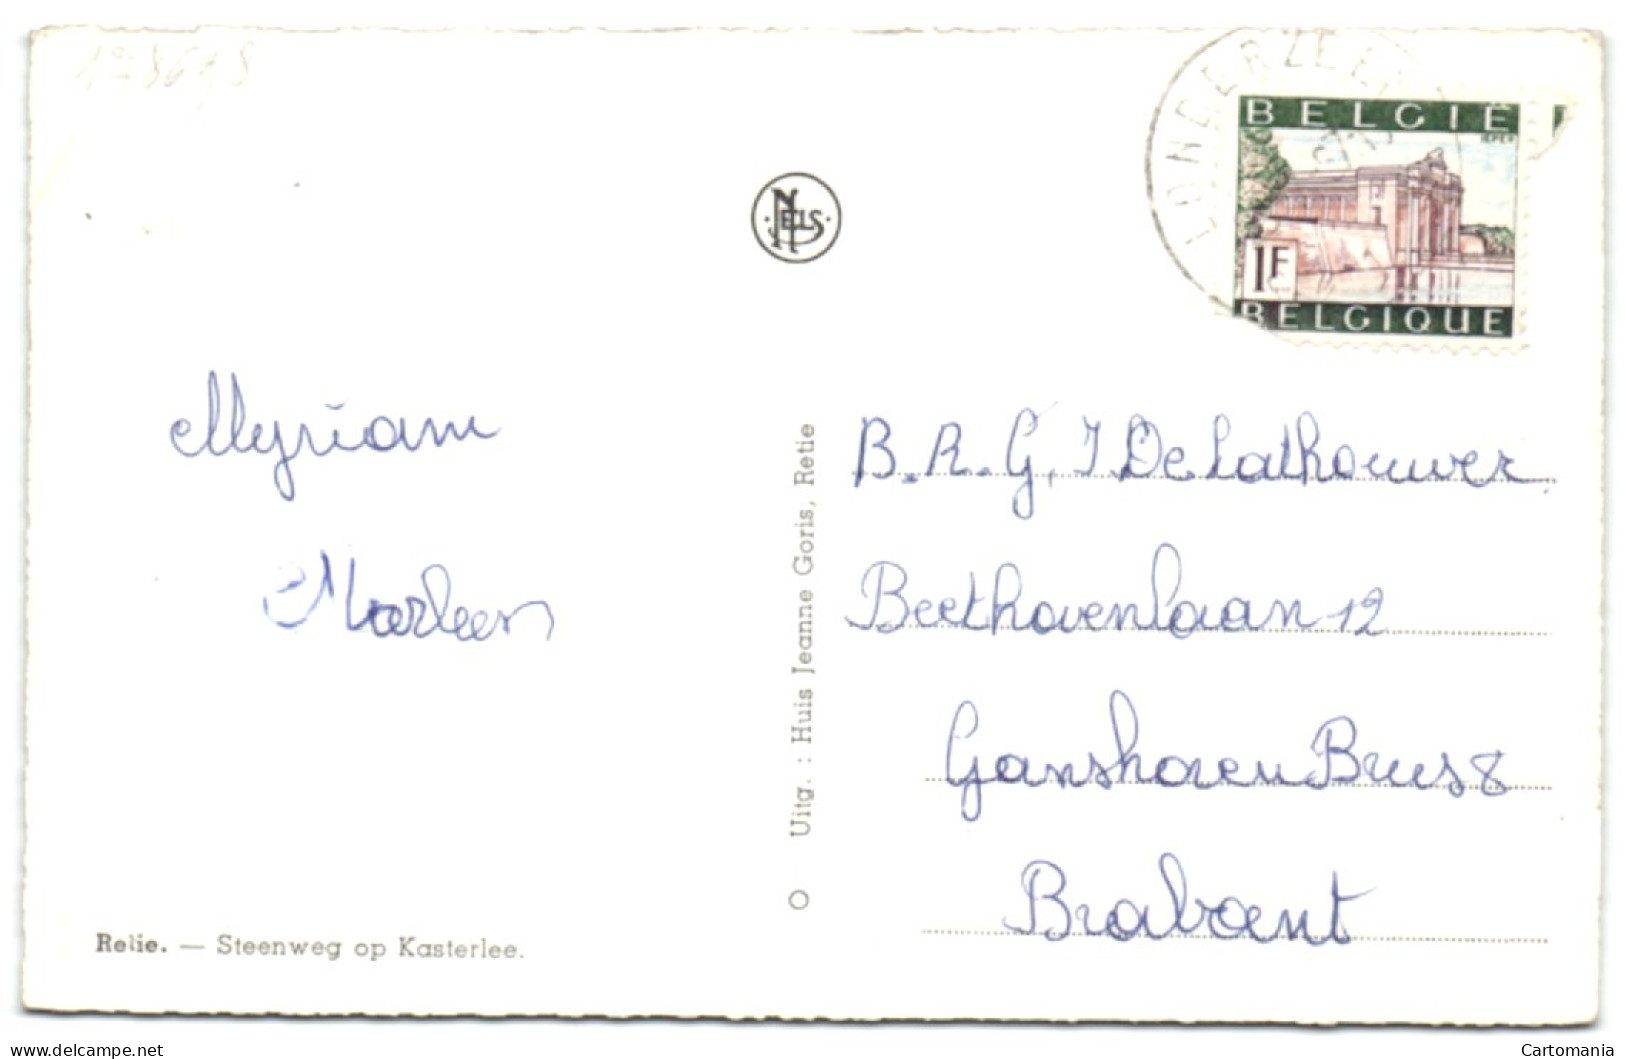 128618
LONDERZEEL
BELGIË
IEPER
1F
BELGIQUE
NELS
Myriam
Marleen
Uitg. : Huis Jeanne Goris, Retie
B.R.G, J Delathouwer
Beethovenlaan 12
Ganshoren Brus 8
Brabant
Retie. — Steenweg op Kasterlee.
www.delcampe.net
Cartomania